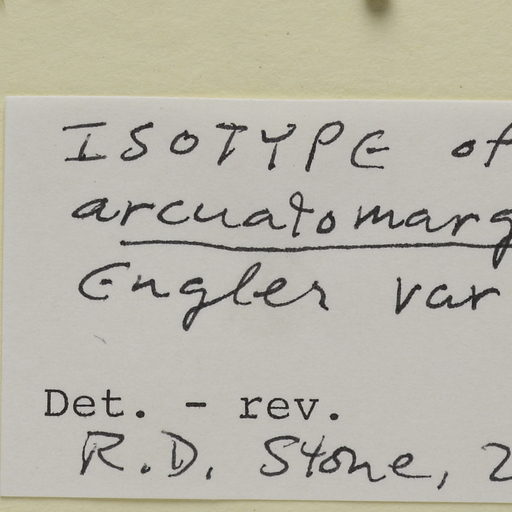 ISOTYPE of
arcuatomarg
Engler var
Det. - rev.
R.D. Stone, 2